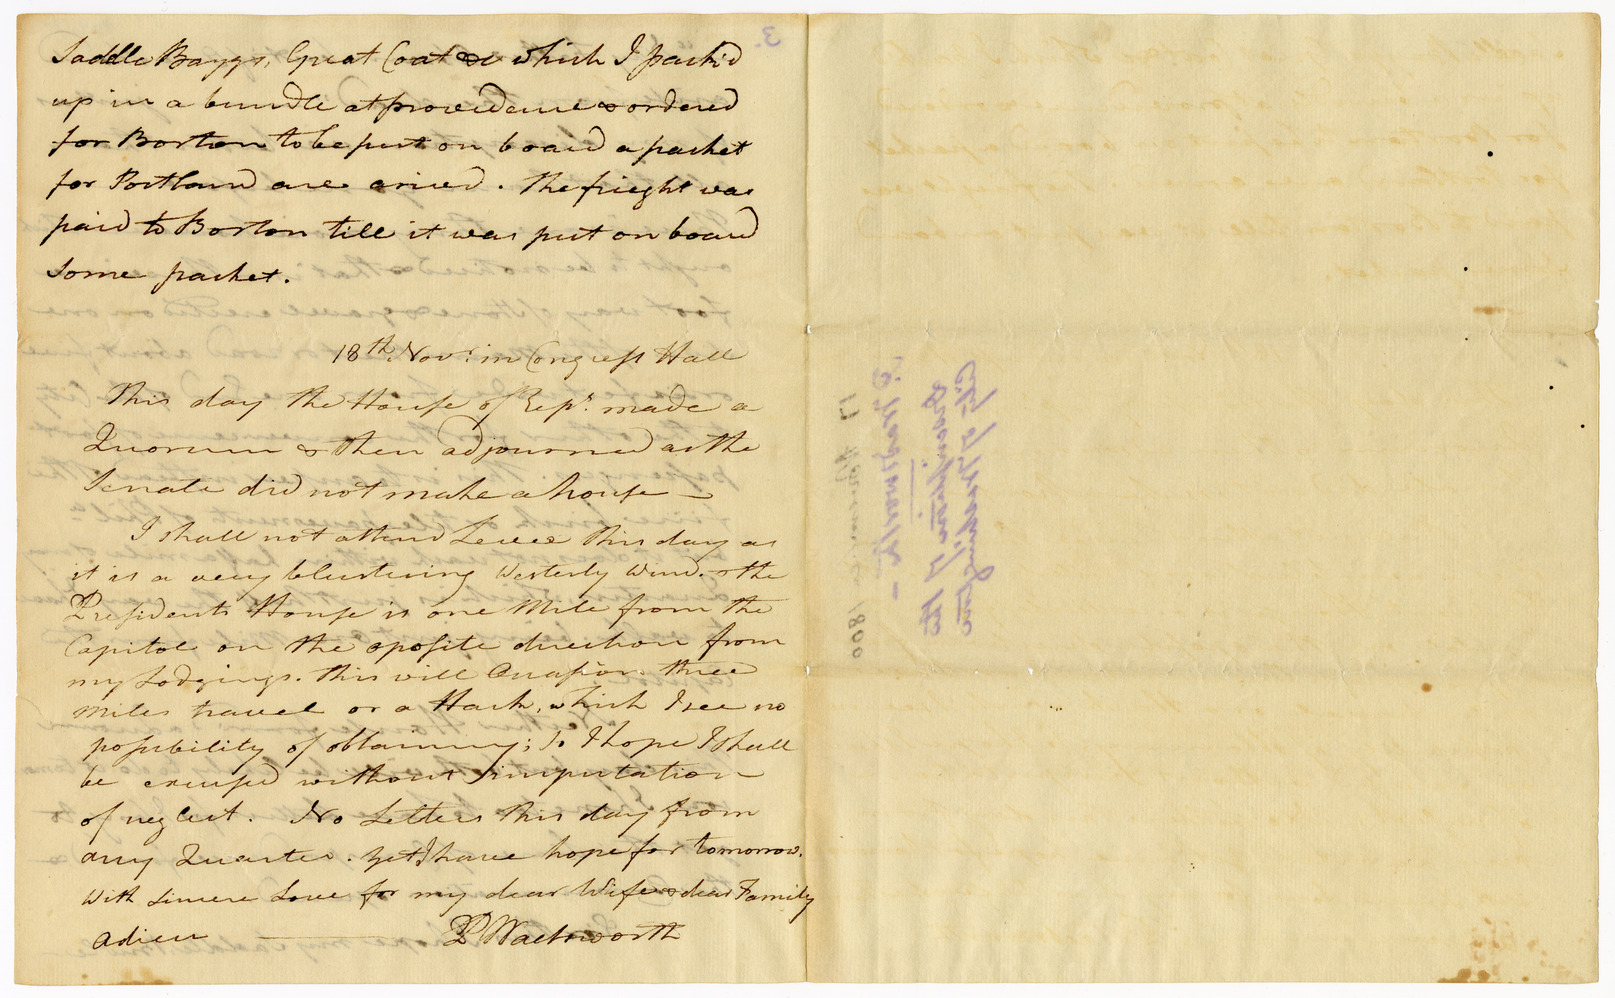 Saddle Baggs, Great Coat &c which I pack'd
up in a bundle at providence & ordered
for Boston to be put on board a packet
for Portland are arived. The frieght was
paid to Boston till it was put on board
some packet.
18th. Novr. in Congress Hall
This day the House of Reps. made a
Quorum & then adjourned as the
Senate did not make a house —
I shall not attend Levee this day as
it is a very blustering Westerly Wind. & the
Presidents House is one Mile from the
Capitol on the oposite direction from
my Lodgings. this will Occasion three
Miles travel or a Hack, which I see no
possibility of obtaining; so I hope I shall
be excused without imputation
of neglect. No Letters this day from
any Quarter. yet I have hope for tomorrow.
With sincere Love for my dear Wife & dear Family
adieu — P Wadsworth
3.
17
1800